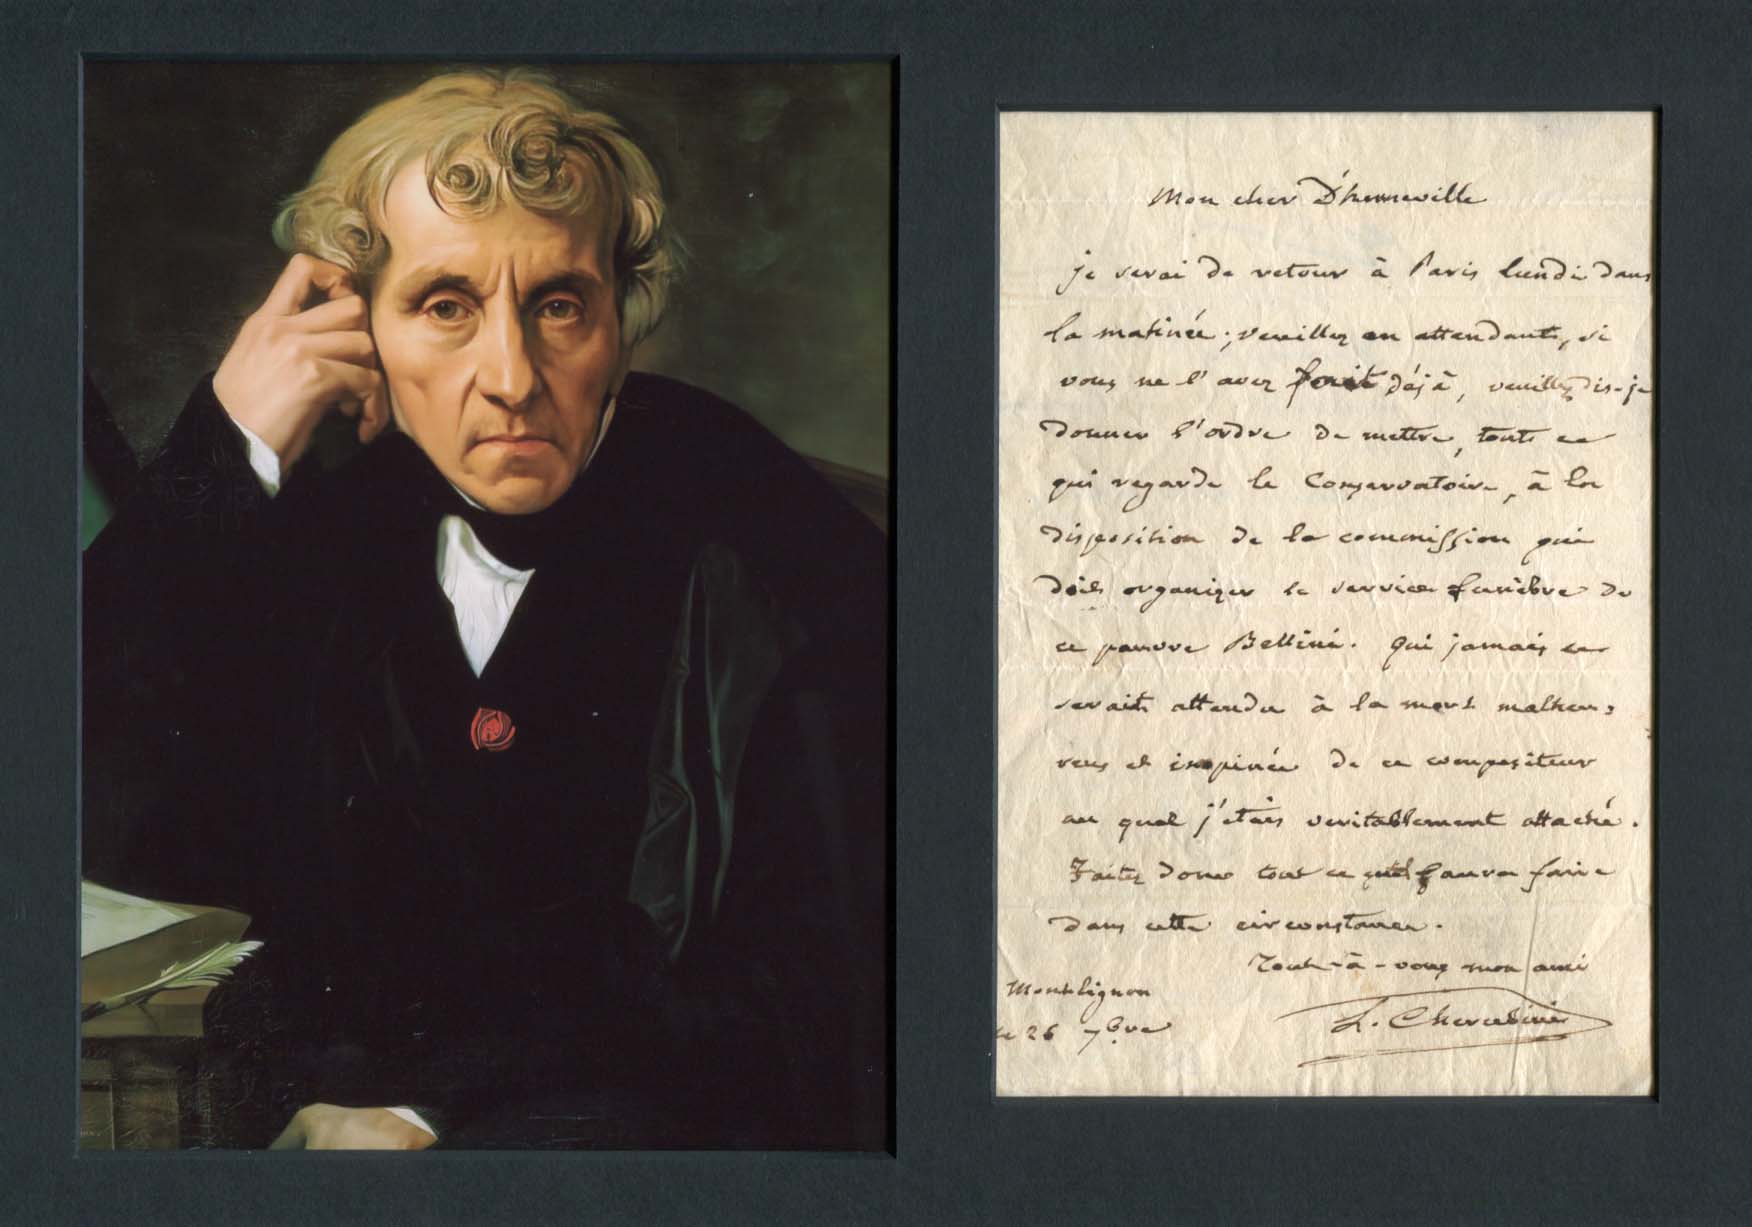 Mon cher D'henneville
je serai de retour à Paris lundi dans
la matinée; veuillez en attendant, si
vous ne l'avez fait déjà, veuillez dis-je
donner l'ordre de mettre, tout ce
qui regarde le Conservatoire, à la
disposition de la commission qui
doit organizer le service funèbre de
ce pauvre Bellini. Qui jamais ce
serait attendu à la mort malheu=
reus et inopinée de ce compositeur
au quel j'étais veritablement attaché.
Faites donc tout ce qu'il faura faire
dans cette circonstance.
Tout-à-vous mon ami
Montlignon
le 26 7bre
L. Cherubini